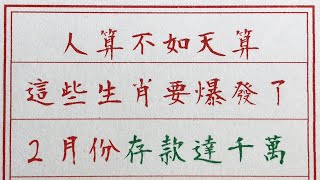 人算不如天算
這些生肖要爆發了
2月份存款達千萬